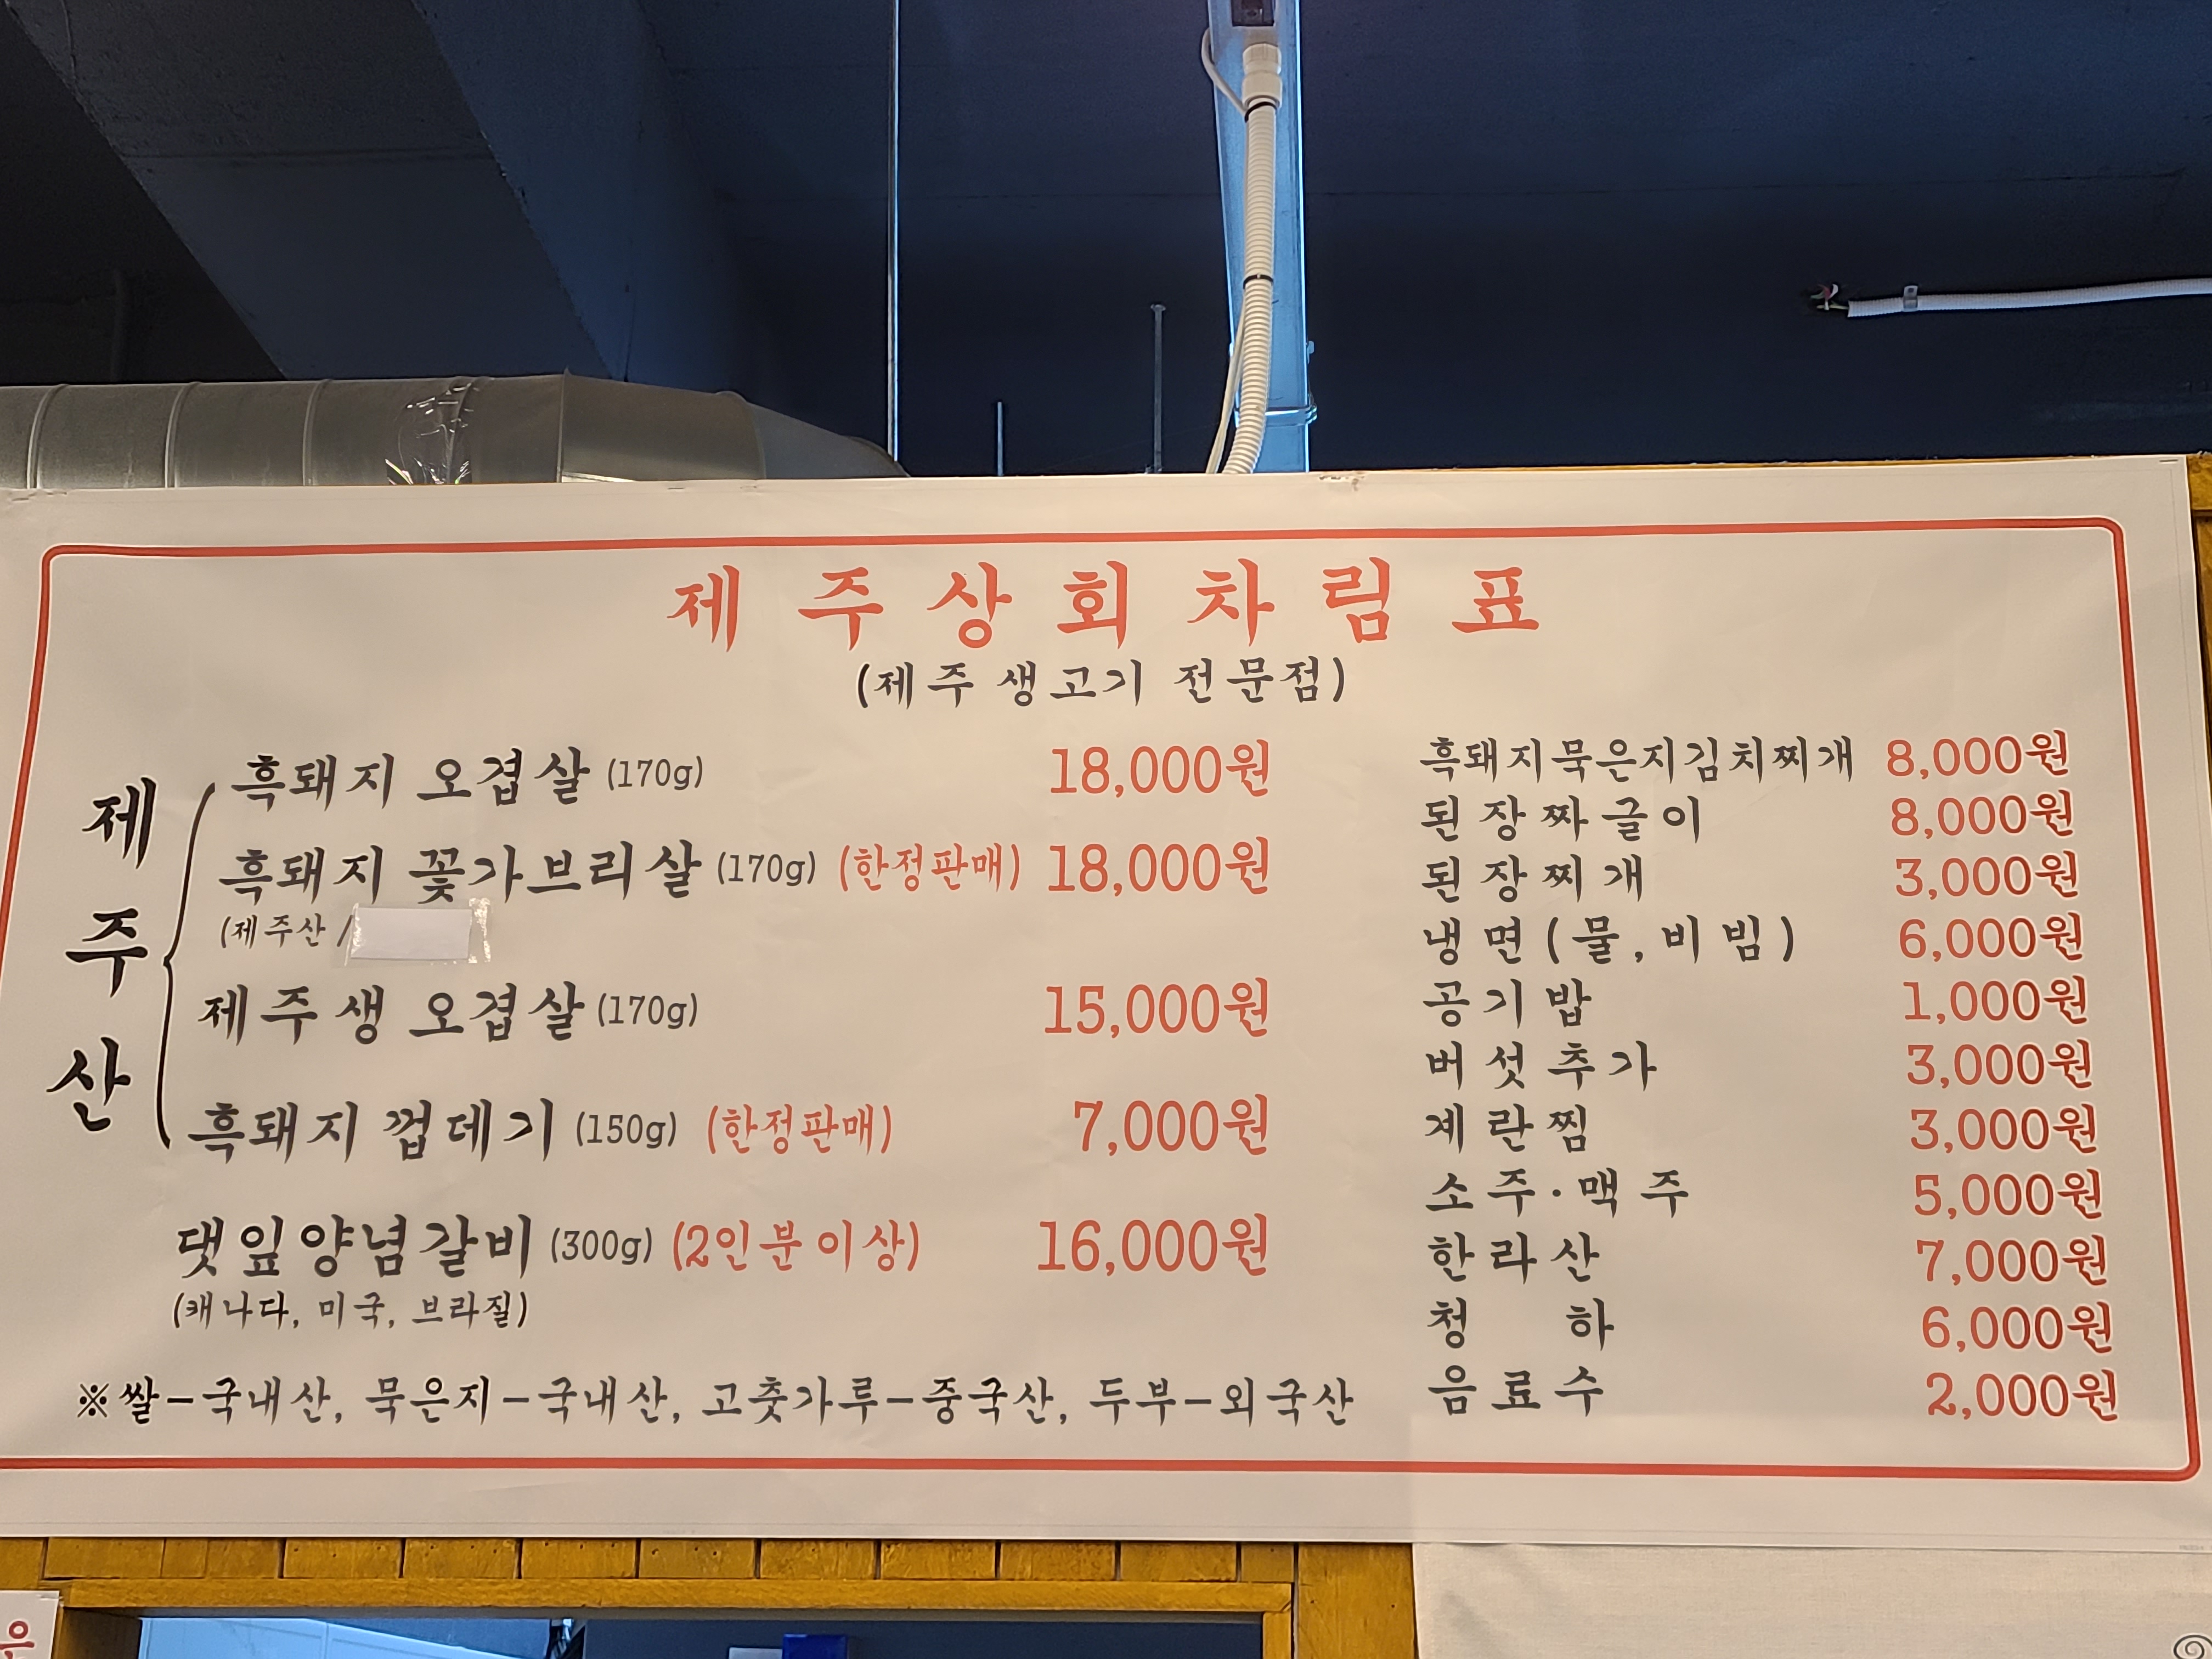 제주상회차림표
(제주 생고기 전문점)
제주산
흑돼지 오겹살 (170g) 18,000원
흑돼지 꽃가브리살 (170g) (한정판매) 18,000원
(제주산 /
제주생 오겹살 (170g) 15,000원
흑돼지 껍데기 (150g) (한정판매) 7,000원
댓잎양념갈비 (300g) (2인분이상) 16,000원
(캐나다, 미국, 브라질)
※쌀-국내산, 묵은지-국내산, 고춧가루-중국산, 두부-외국산
흑돼지묵은지김치찌개 8,000원
된장짜글이 8,000원
된장찌개 3,000원
냉면(물,비빔) 6,000원
공기밥 1,000원
버섯추가 3,000원
계란찜 3,000원
소주·맥주 5,000원
한라산 7,000원
청하 6,000원
음료수 2,000원
은